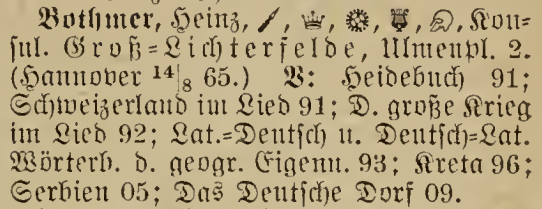 Bothmer, Heinz, Kon-
sul. Groß-Lichterfelde, Ulmenpl. 2.
(Hannover 14|8 65.) B: Heidebuch 91;
Schweizerland im Lied 91; D. große Krieg
im Lied 92; Lat.-Deutsch u. Deutsch-Lat.
Wörterb. d. geogr. Eigenn. 93; Kreta 96;
Serbien 05; Das Deutsche Dorf 09.